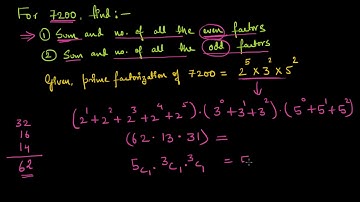 For 7200, find:-
① Sum and no. of all the even factors
② Sum and no. of all the odd factors
Given, prime factorization of 7200 = 2⁵ × 3² × 5²
(2¹ + 2² + 2³ + 2⁴ + 2⁵) · (3⁰ + 3¹ + 3²) · (5⁰ + 5¹ + 5²)
32
16
14
62
(62 · 13 · 31) =
⁵C₁ · ³C₁ · ³C₁ = 5